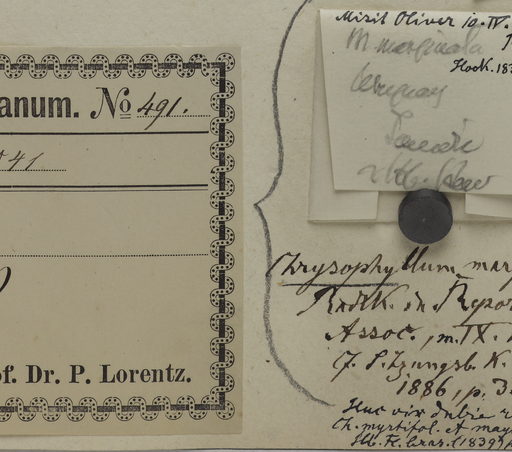 anum. No 491.
41
of. Dr. P. Lorentz.
Misit Oliver 10. IV.
M. marginata
Hook. 183
Uruguay
Chrysophyllum mar
Radlk. in Repor
Assoc., m. IX.
Cf. S. Izungsb. K.
1886, p. 3
Huc vix dubia
Ch. myrtifol. et may
Hb. Fl. bras. (1839)